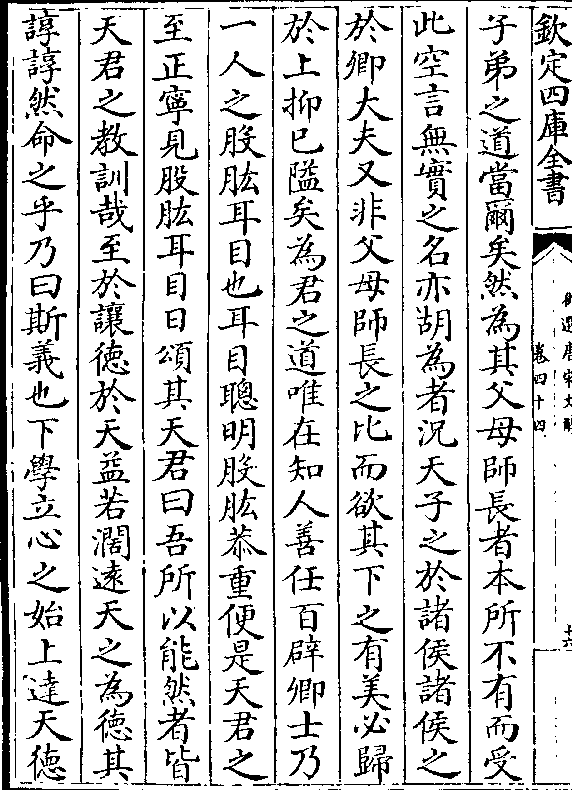 欽定四庫全書
御選唐宋文醇
卷四十四
子弟之道當爾矣然為其父母師長者本所不有而受
此空言無實之名亦胡為者況天子之於諸侯諸侯之
於卿大夫又非父母師長之比而欲其下之有美必歸
於上抑已隘矣為君之道唯在知人善任百辟卿士乃
一人之股肱耳目也耳目聰明股肱恭重便是天君之
至正寧見股肱耳目日頌其天君曰吾所以能然者皆
天君之教訓哉至於讓德於天益若濶遠天之為德其
諄諄然命之乎乃曰斯義也下學立心之始上達天德